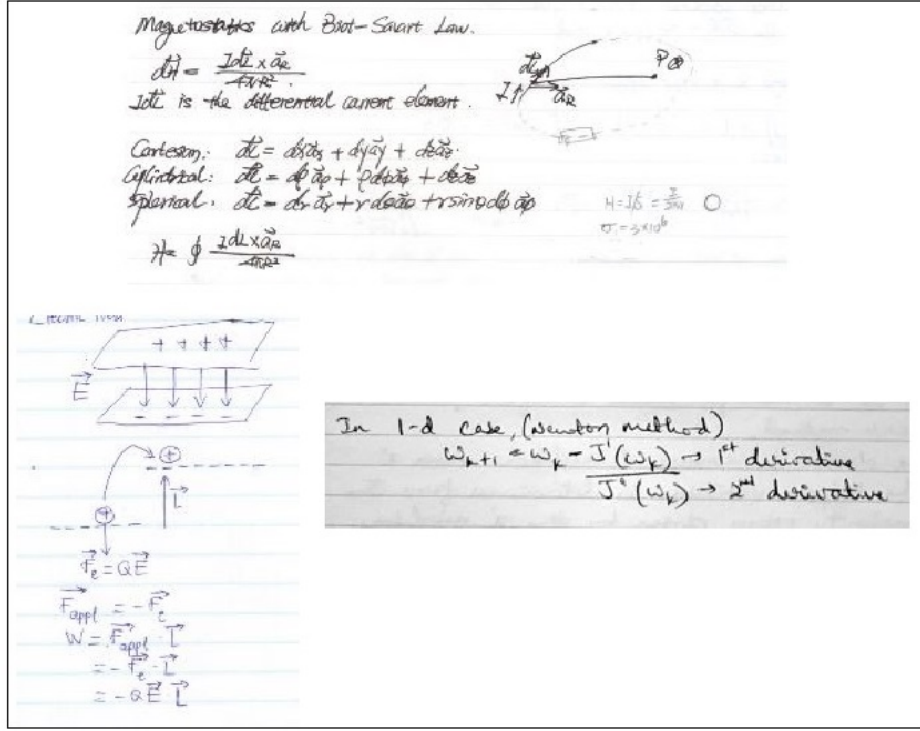 Magnetostatics with Biot-Savart Law.
dH⃗ = IdL⃗ × a⃗R / 4πR²
IdL⃗ is the differential current element.
P
dL⃗
I↑
a⃗R
Cartesian: dL⃗ = dxa⃗x + dya⃗y + dza⃗z
Cylindrical: dL⃗ = dρa⃗ρ + ρdϕa⃗ϕ + dza⃗z
Spherical: dL⃗ = dra⃗r + rdθa⃗θ + rsinθdϕa⃗ϕ
H = ∮ IdL × a⃗R / 4πR²
+ + + +
E⃗
- - - -
+
L⃗
+
F⃗e = QE⃗
F⃗appl = -F⃗e
W = F⃗appl · L⃗
= -F⃗e · L⃗
= -QE⃗ · L⃗
In 1-d case, (Newton method)
wk+1 = wk - J'(wk) → 1st derivative
J"(wk) → 2nd derivative